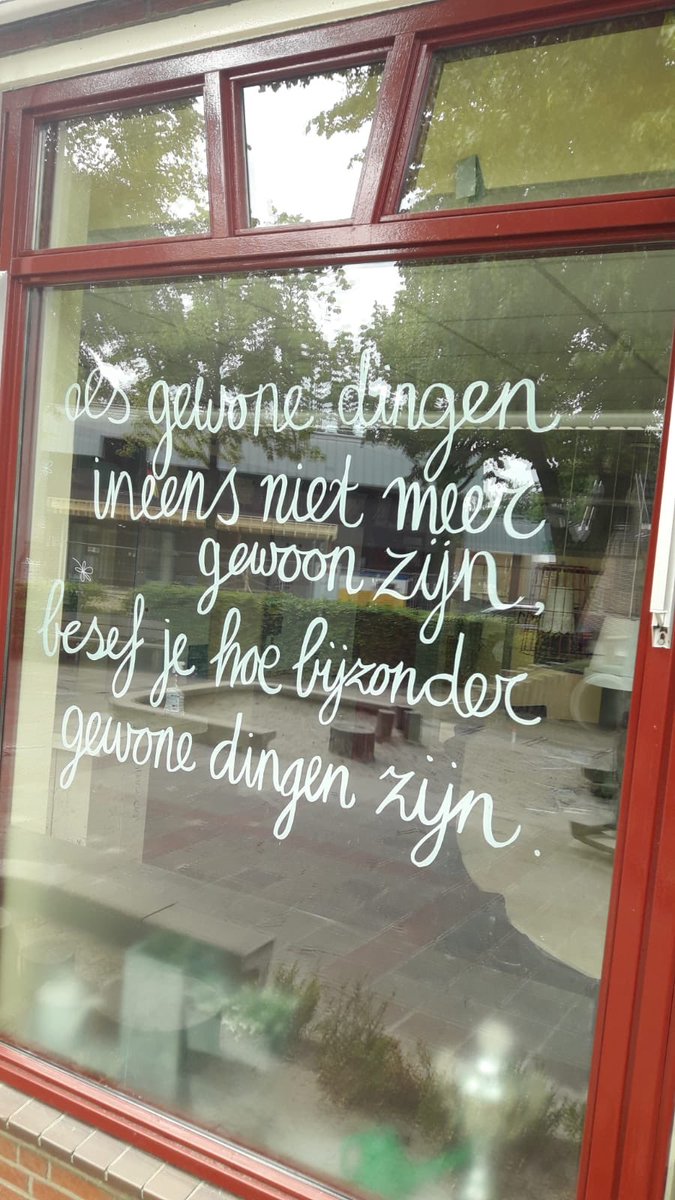 als gewone dingen
ineens niet meer
gewoon zijn,
besef je hoe bijzonder
gewone dingen zijn.